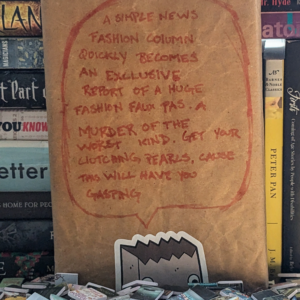 A SIMPLE NEWS
FASHION COLUMN
QUICKLY BECOMES
AN EXCLUSIVE
REPORT OF A HUGE
FASHION FAUX PAS. A
MURDER OF THE
WORST KIND. GET YOUR
CLUTCHING PEARLS, CAUSE
THIS WILL HAVE YOU
GASPING
LAN
MAGICIANS
Part of
YOU KNOW
etter
HOME FOR PE
Mr. Hyde
PETER PAN
J. M